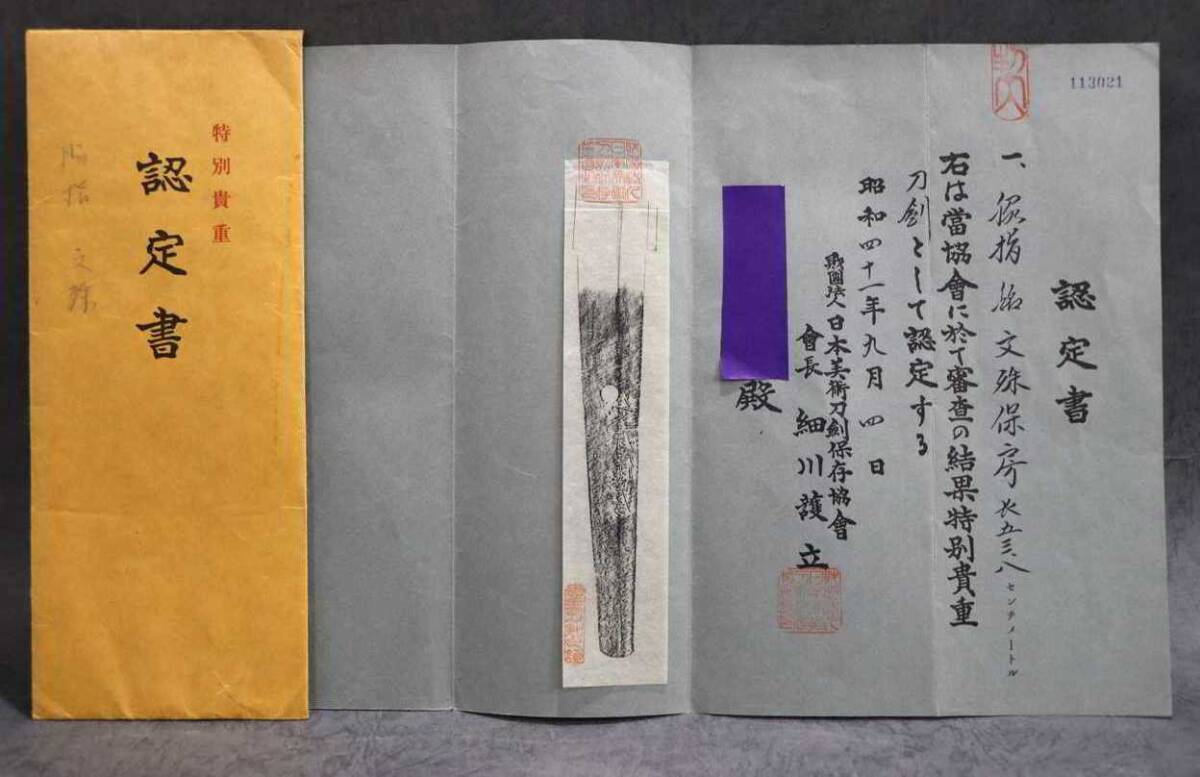 113021
認定書
一、脇指 銘 文殊保房 長五三、八センチメートル
右は當協會に於て審査の結果特別貴重
刀劍として認定する
昭和四十一年九月四日
財團法人日本美術刀劍保存協會
會長 細川護立
殿
特別貴重
認定書
脇指 文殊